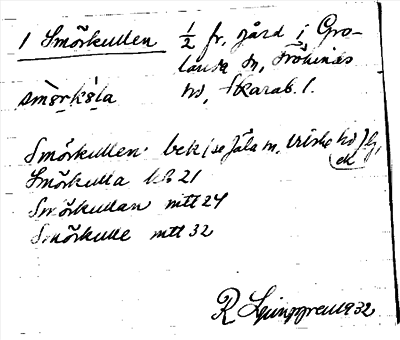 1 Smörkullen ½ fr. gård i Gro-
landa sn, Frökinds
smörkəla hd, Skarab. l.
Smörkullen bek i se Jäla sn, Vilske hd
Smörkulla kb 21
Smörkullan mtl 24
Smörkulle mtl 32
R Ljunggren 1932